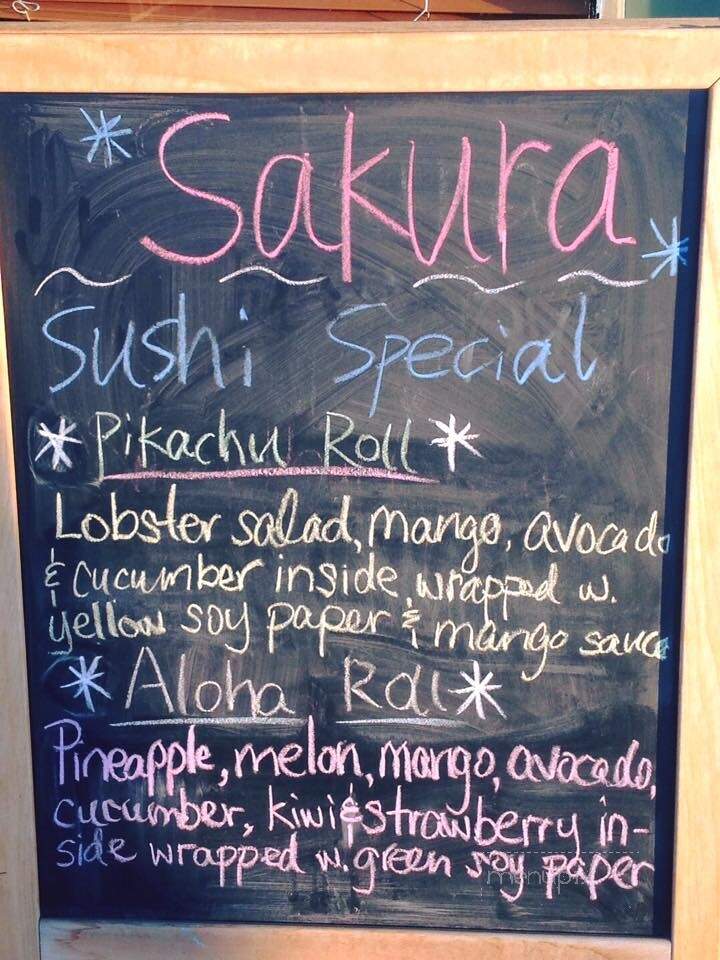 Sakura
Sushi Special
Pikachu Roll
Lobster salad, mango, avocado
& cucumber inside, wrapped w.
yellow soy paper & mango sauce
Aloha Roll
Pineapple, melon, mango, avocado,
cucumber, kiwi & strawberry in-
side wrapped w. green soy paper